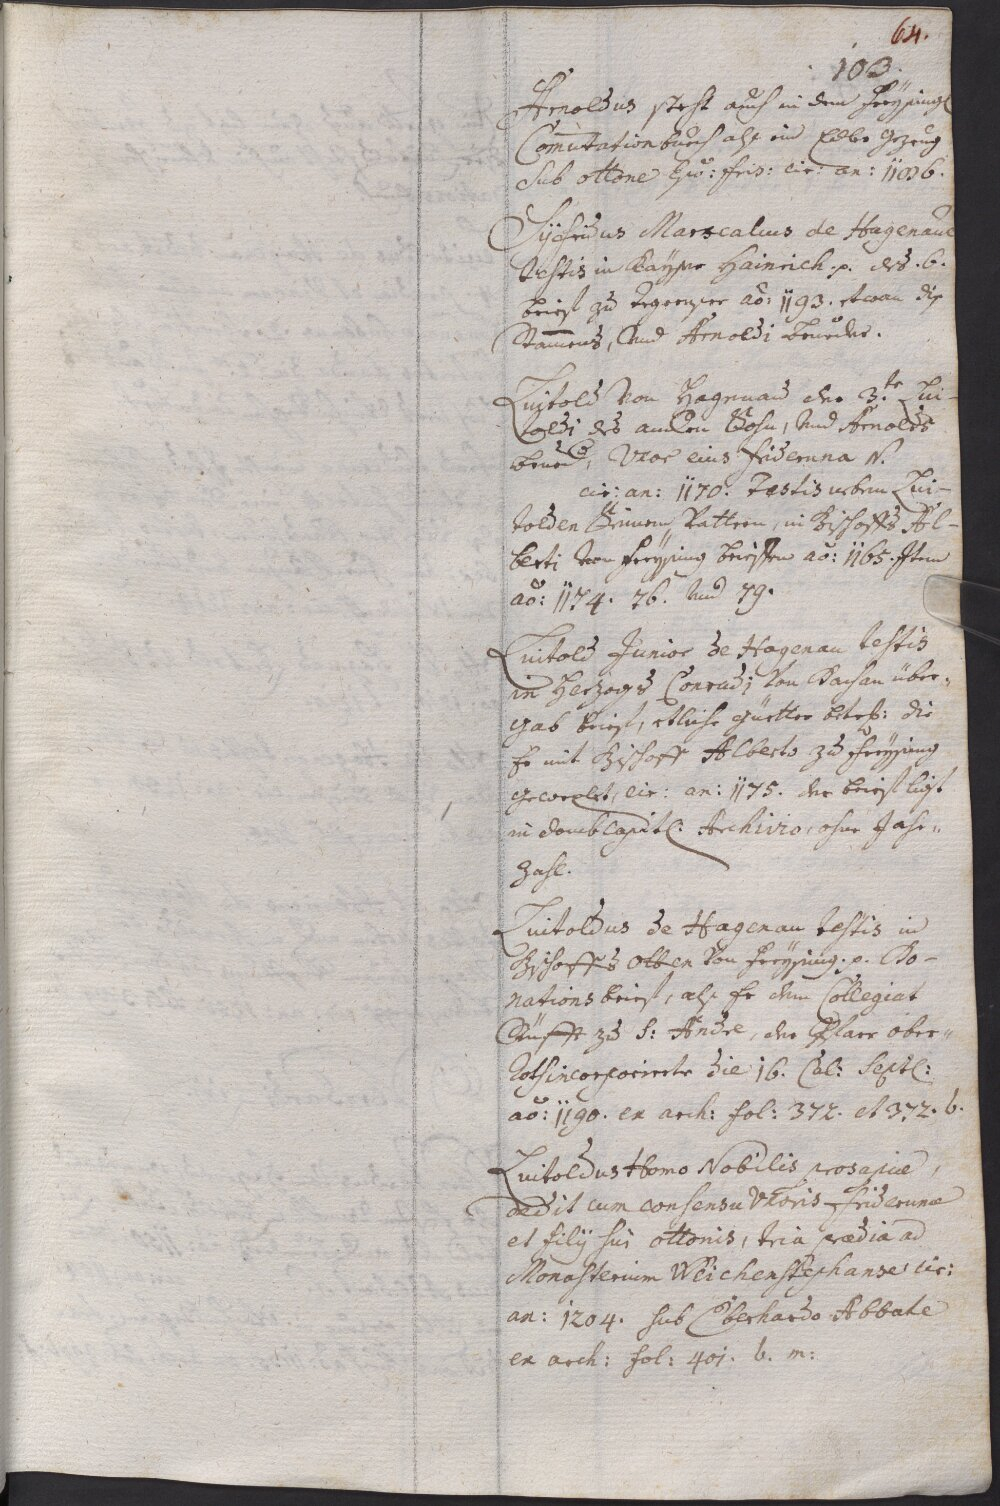 64.
103.
Arnoldus steht auch in dem Freysing:
Com̄utationbuch alß ein Edler gezeug
sub ottone Epō: fris: cir: an:
Marscalcus de Hagenaue
testis in Kayser Hainrich .p. des .6.
brieff zu Tegernsee aō: 1193. etwan diß
Nammens, Vnd Arnoldi brueder.
Luitold Von Hagenau der 3.te Lui-
toldi des andern Sohn, Vnd Arnolds
brueder, Vxor eius friderunna N.
cir: an: 1170. Testis neben Lui-
tolden Seinem Vattern, in Bischoffs Al-
berti Von Freysing brieffen aō: 1165. Item
aō: 1174. 76. Vnd 79.
Luitold Junior de Hagenau testis
in Herzogs Conradi Von Dachau über-
gab brieff, etliche güetter betreff: die
Er mit Bischoff Alberto zu Freysing
gewexlet, cir: an: 1175. der brieff ligt
in domb Capitl: Archivio, ohne Jahr-
zahl.
Luitoldus de Hagenau testis in
Bischoffs otten Von Freysing .p. Do-
nationsbrieff, alß Er dem Collegiat
Stüfft zu S: Andre, die Pfarr ober-
die 16. Cal: Septl:
aō: 1190. ex arch: fol: 372. et 372. b.
Luitoldus Homo Nobilis prosapiæ,
dedit cum consensu Vxoris friderunæ
et filij sui ottonis, tria prædia ad
Monasterium Weichenstephanse cir:
an: 1204. sub Eberhardo Abbate
ex arch: fol: 401. b. m: